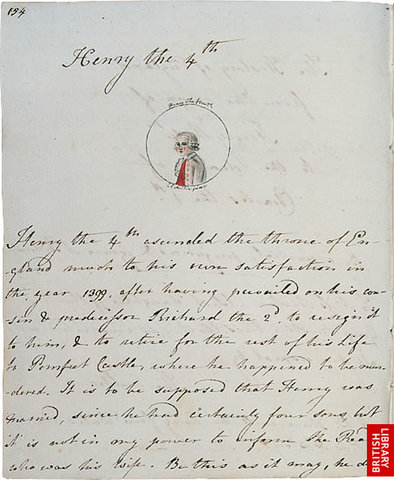 154
Henry the 4th
Henry the fourth
Henry the 4th ascended the throne of En-
gland much to his own satisfaction in
the year 1399, after having prevailed on his cou-
sin & predecessor Richard the 2d, to resign it
to him, & to retire for the rest of his life
to Pomfret Castle, where he happened to be mur-
dered. It is to be supposed that Henry was
married, since he had certainly four sons, but
it is not in my power to inform the Read
who was his Wife. Be this as it may, he d
BRITISH
LIBRARY